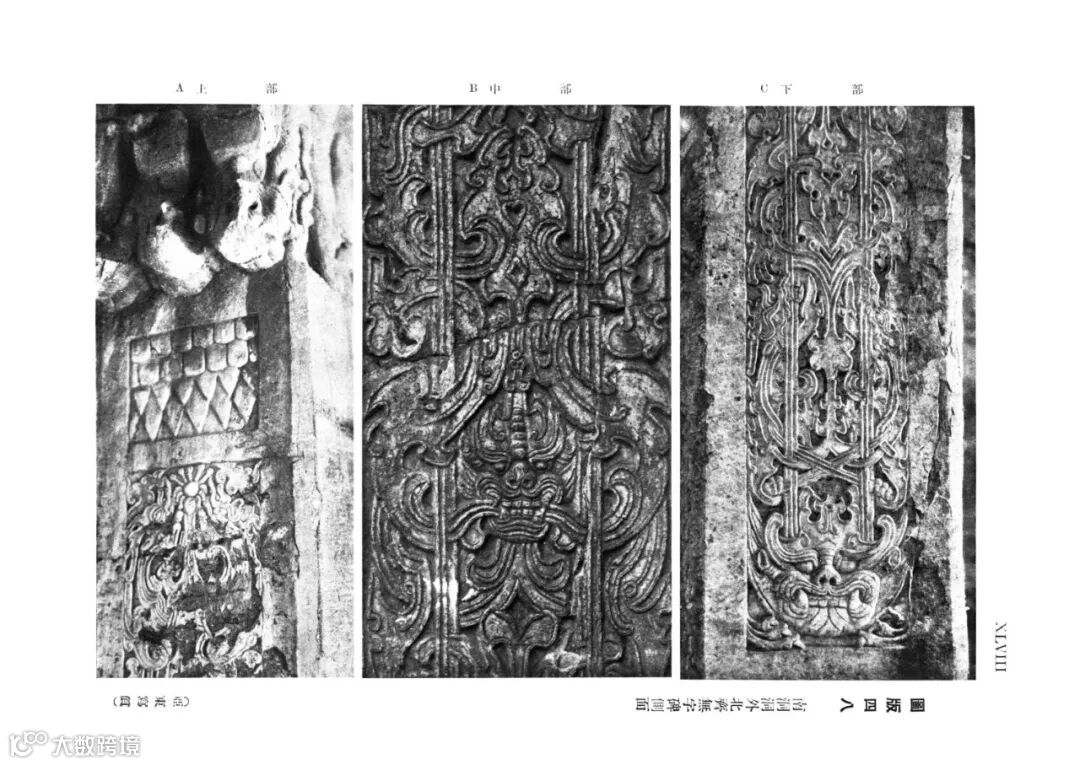 A 上部
B 中部
C 下部
XLVIII
圖版四八 南洞洞外北齊無字碑側面
大数跨境